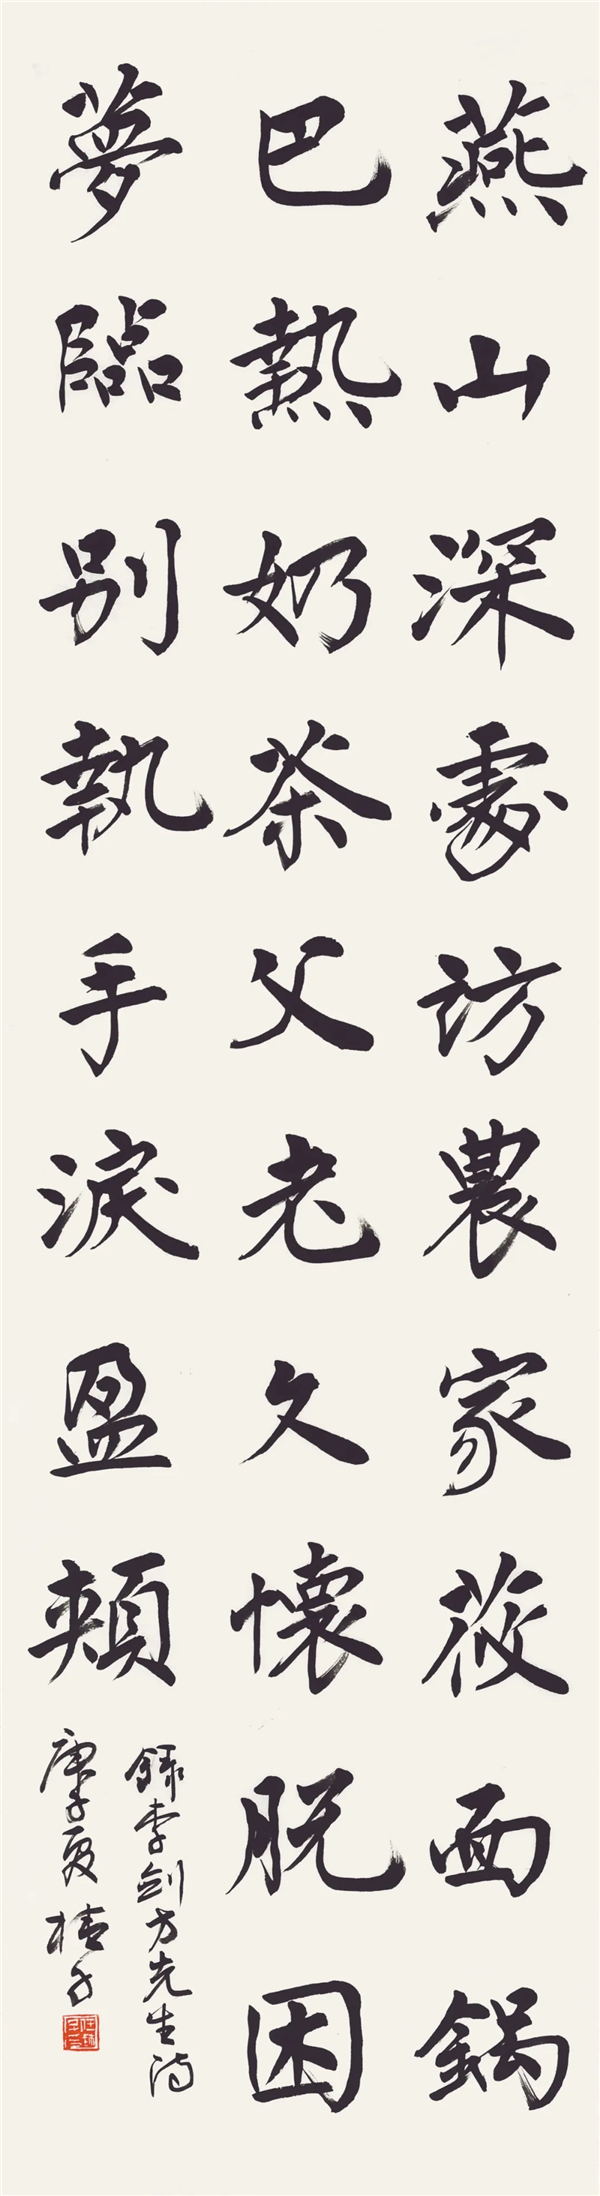 燕山深處訪農家莜面鍋
巴熱奶茶父老久懷脫困
夢臨別執手淚盈頰
錄李劍方先生詩
庚子夏